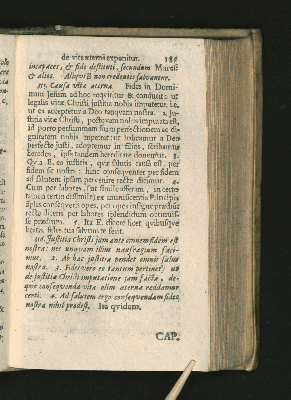 de vita æterna exponitur. 181
incapaces, & fide destituti, secundum Muretũ
& alios. Aliqui E non credentes salvantur.
315. Causa vitæ æternæ. Fides in Domi-
num Jesum ad hoc requiritur & conducit: ut
legalis vitæ Christi justitia nobis imputetur, i.e.
ut ea acceptetur a Deo tanquam nostra. 2. Ju-
stitia vitæ Christi, postquam nobis imputata est,
id porro pertinet
dignitatem nobis impetret: ut habeamur a Deo
perfecte justi, adoptemur in filios, scribamur
heredes, ipsa tandem hereditate donemur. 3.
Quia E. ea justitia, quæ salutis causa est, per
fidem fit nostra: hinc consequenter per fidem
ad salutem ipsam pervenire recte dicimur. 4.
Cum per labores,
tamen certo
plus consequeris opes, per opes insigne prædium
recte diceris per labores splendidum
prædium. 5. Ita E. dicere licet quibusque
fides tua salvum te fecit.
316. Justitia Christi jam ante intercessionem est
nostra: nec unquam illius naufragium faci-
mus. 2. Ab hac justitia pendet omnis salus
nostra. 3. Fides vero eo tantum pertinet, ut
de justitiæ Christi imputatione jam facta, de-
que consequenda vita olim æterna reddamur
certi. 4. Ad salutem ergo consequendam fides
nostra nihil prodest. Ita quidam.
CAP.